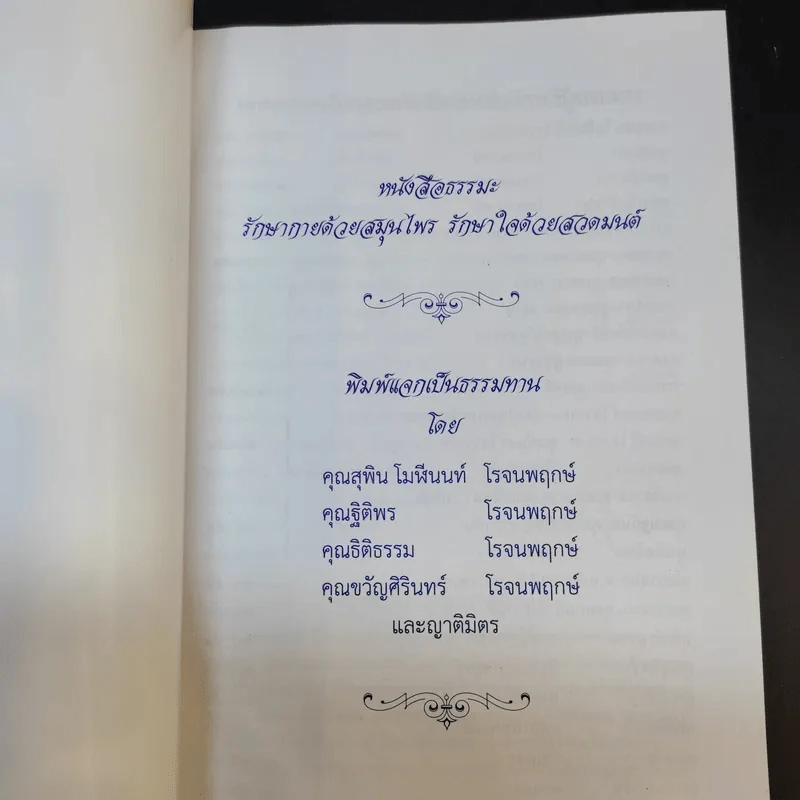 หนังสือธรรมะ
รักษากายด้วยสมุนไพร รักษาใจด้วยสวดมนต์
พิมพ์แจกเป็นธรรมทาน
โดย
คุณสุพิน โมฬีนนท์ โรจนพฤกษ์
คุณฐิติพร โรจนพฤกษ์
คุณธิติธรรม โรจนพฤกษ์
คุณขวัญศิรินทร์ โรจนพฤกษ์
และญาติมิตร